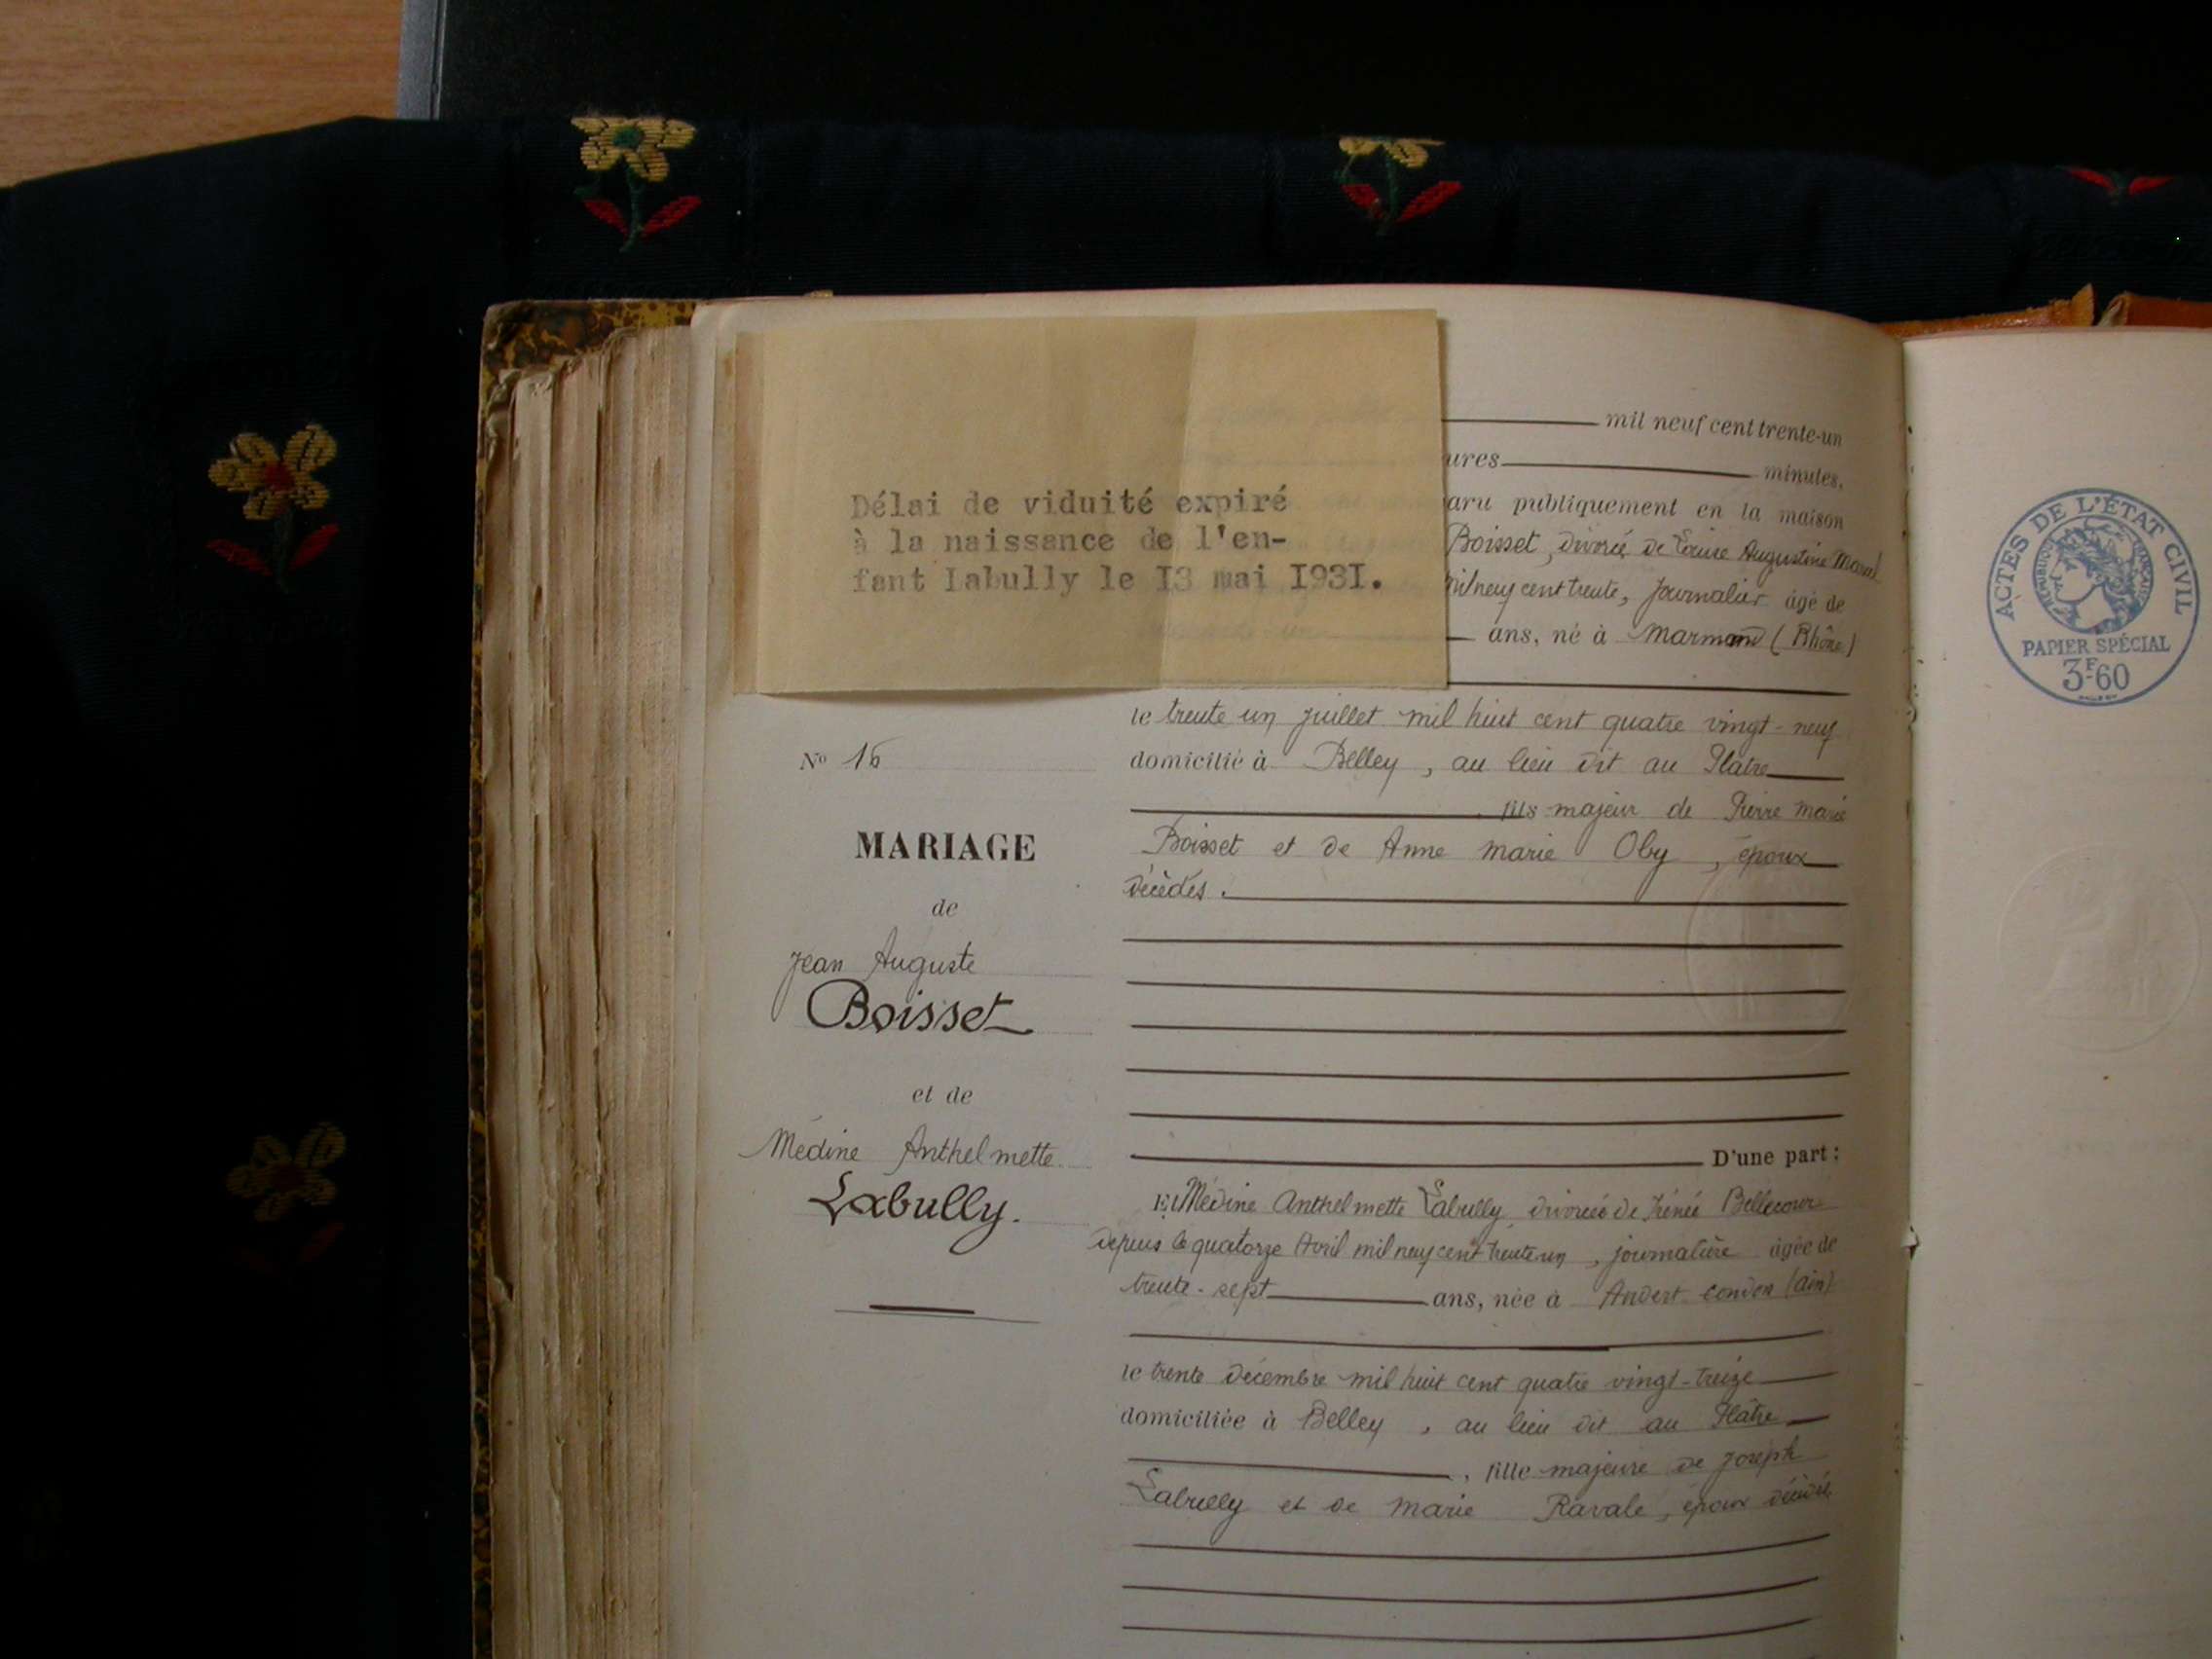 Délai de viduité expiré
à la naissance de l'en-
fant Iabully le I3 mai I93I.
mil neuf cent trente-un
ures minutes,
aru publiquement en la maison
Boisset, divorcé de Louise Augustine
mil neuf cent trente, journalier âgé de
ans, né à (Rhône)
le trente un juillet mil huit cent quatre vingt-neuf
domicilié à Belley, au lieu dit au Plâtre
, fils majeur de Pierre Marie
Boisset et de Anne Marie Oby, époux
décédés.
D'une part;
Et Médine Anthelmette Labully, divorcée de Irénée Bellecour
depuis le quatorze Avril mil neuf cent trente un, journalière âgée de
trente-sept ans, née à Andert Condon (Ain)
le trente décembre mil huit cent quatre vingt-treize
domiciliée à Belley, au lieu dit au Plâtre
, fille majeure de Joseph
Labully et de Marie Ravale, époux décédés
No 16
MARIAGE
de
Jean Auguste
Boisset
et de
Médine Anthelmette
Labully.
ACTES DE L'ÉTAT CIVIL
RÉPUBLIQUE FRANÇAISE
PAPIER SPÉCIAL
3F60